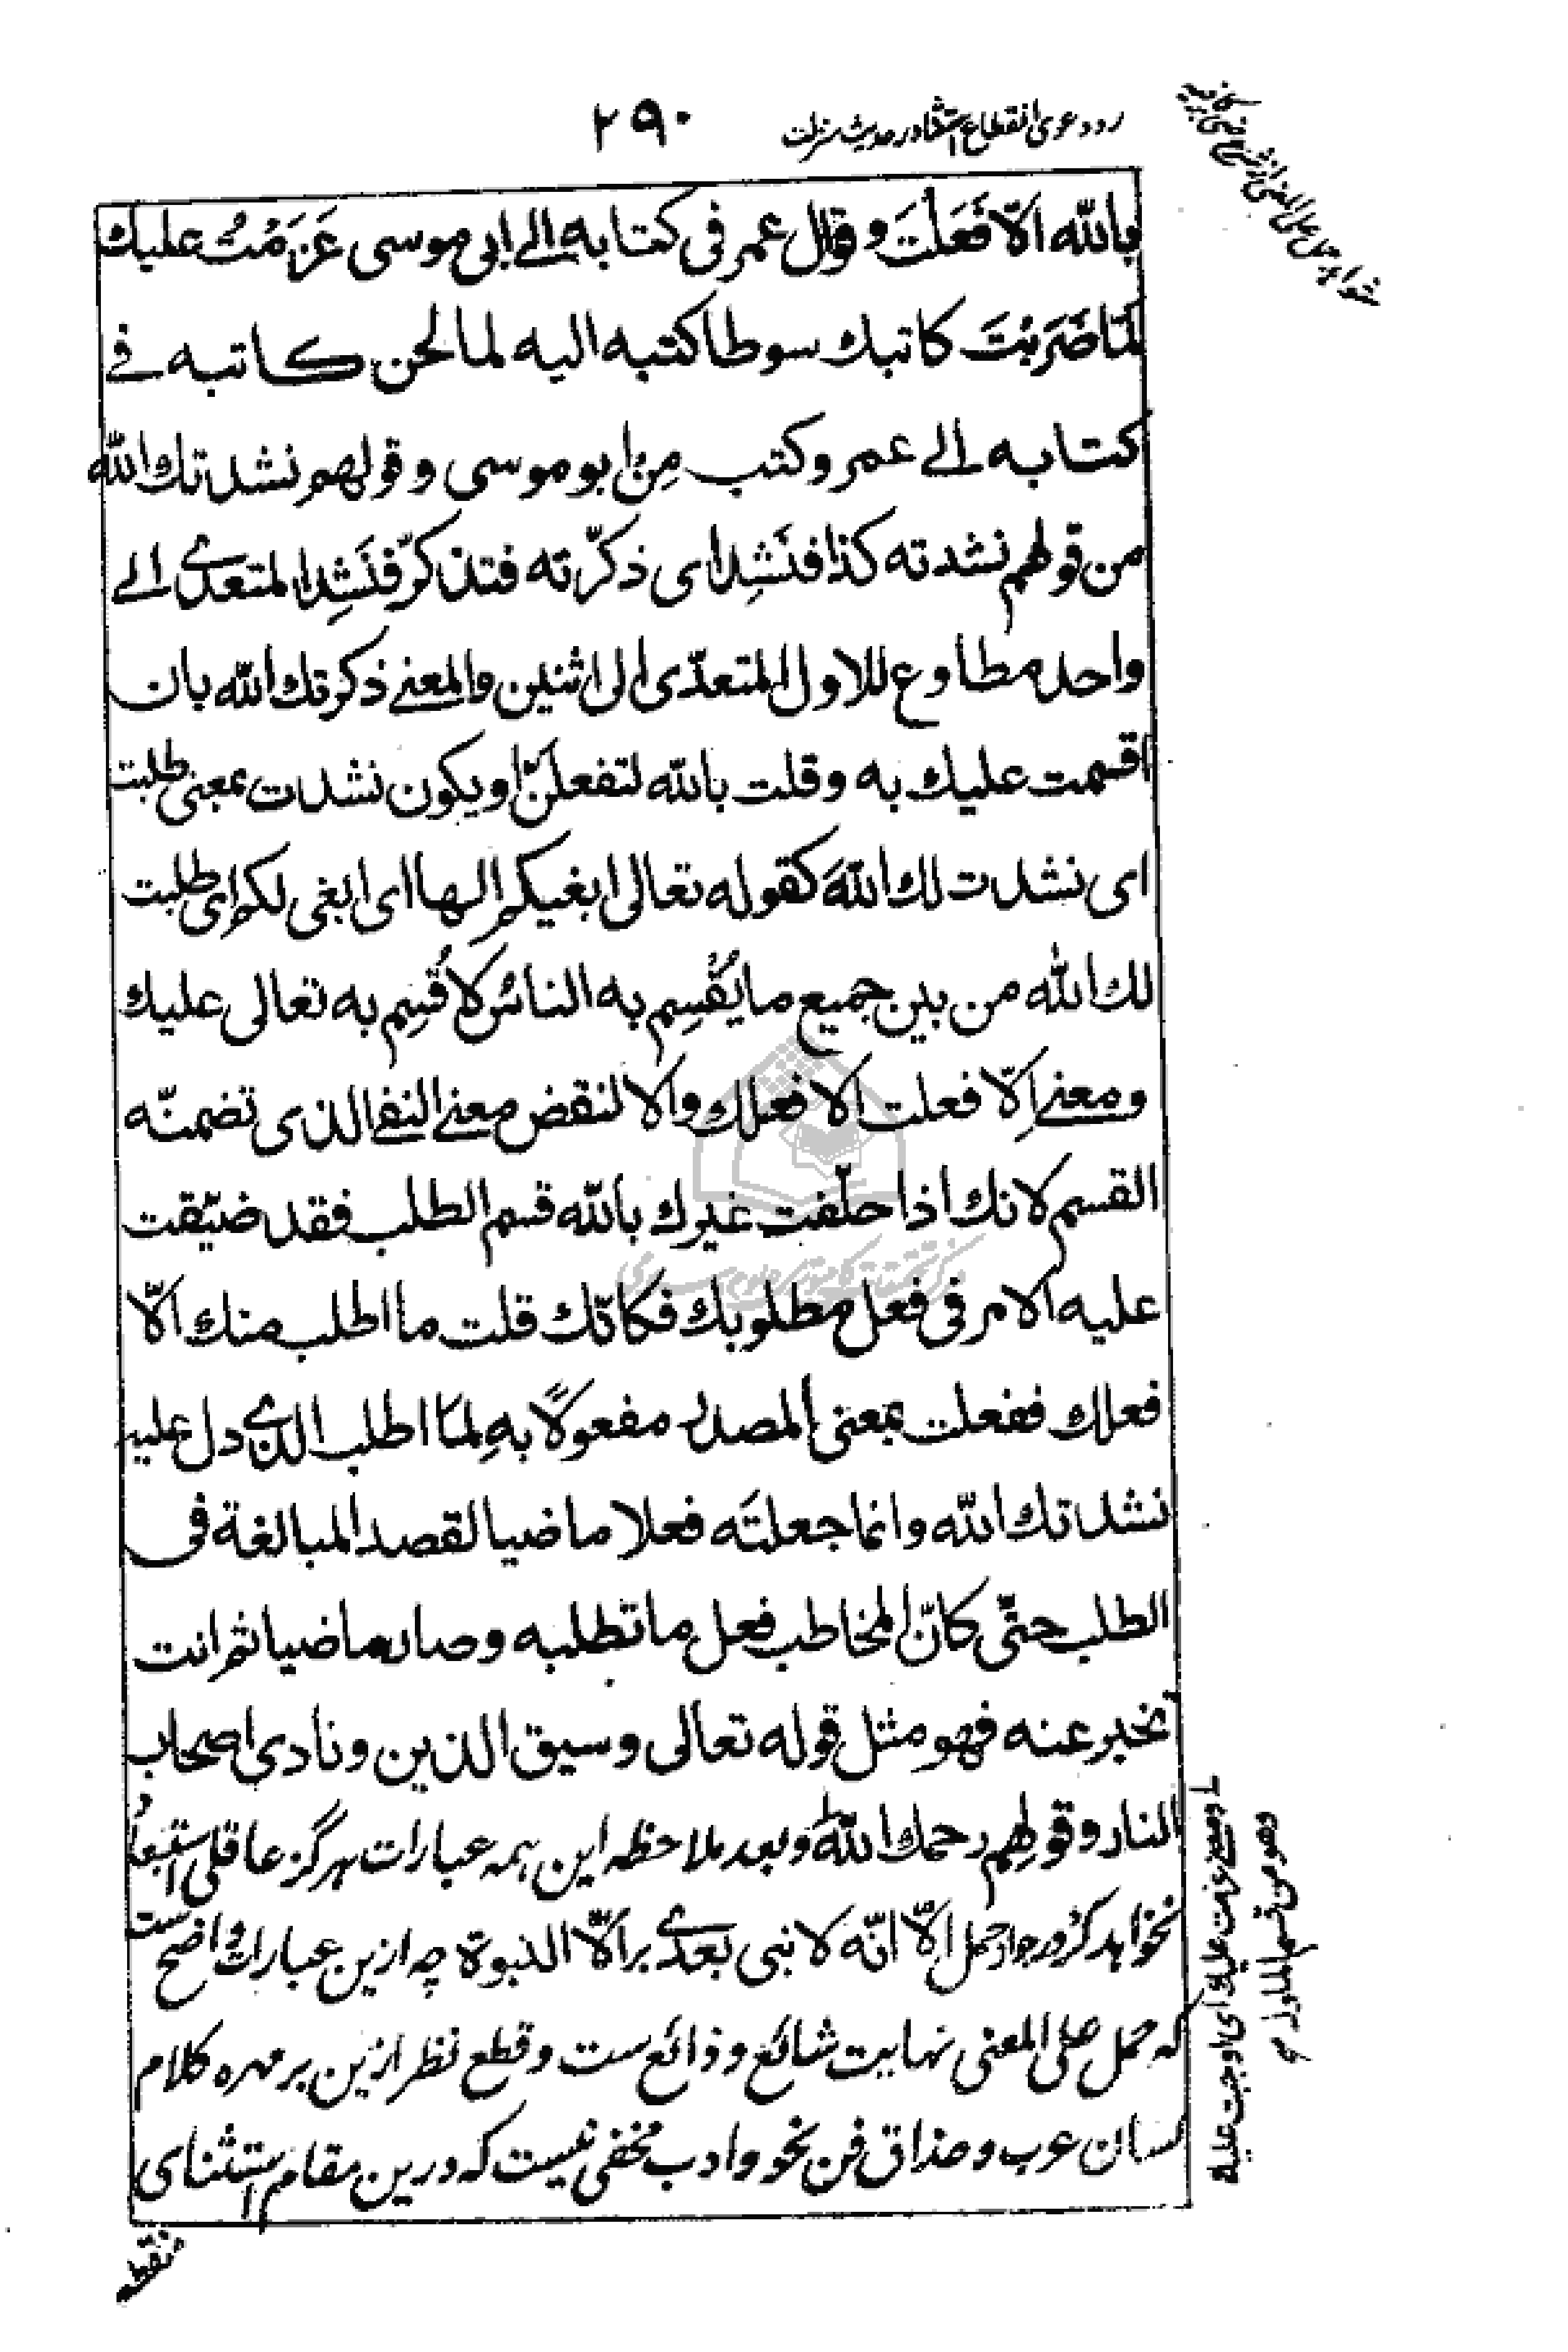 رد دعوی انقطاع استثنا در حدیث منزلت
۲۹۰
بالله الّا فَعَلْتَ وقال عمر فی کتابه الی ابی موسی عَزَمْتُ علیك
لمّا ضَرَبْتَ کاتبك سوطا کتبه الیه لما لحن کاتبه فی
کتابه الی عمر وکتب مِنْ ابو موسی وقولهم نشدتك الله
من قولهم نشدته کذا فنَشِد ای ذکّرته فتذکّر فنَشِد المتعدی الی
واحد مطاوع للاول المتعدّی الی اثنین والمعنی ذکرتك الله بان
اقسمت علیك به وقلت بالله لتفعلنّ او یکون نشدت بمعنی طلبت
ای نشدت لك اللهَ کقوله تعالی ابغیکم الها ای ابغی لکم ای طلبت
لك الله من بین جمیع ما یُقْسِم به الناسُ لاُقسِم به تعالی علیك
ومعنی اِلّا فعلت الا فعلك والا لنقض معنی النفی الذی تضمنّه
القسم لانك اذا حلّفت غیرك بالله قسم الطلب فقد ضیّقت
علیه الامر فی فعل مطلوبك فکانّك قلت ما اطلب منك الّا
فعلك ففعلت بمعنی المصدر مفعولًا بهِ لِمَا اطلب الذی دل علیه
نشدتك الله وانما جعلتَه فعلا ماضیا لقصد المبالغة فی
الطلب حتّی کانّ المخاطب فعل ما تطلبه وصار ماضیا ثم انت
تخبر عنه فهو مثل قوله تعالی وسیق الذین ونادی اصحاب
النار وقولهم رحمك الله وبعد ملاحظه این همه عبارات هرگز عاقلی استبعاد
نخواهد کرد در جواز حمل الّا انّه لا نبی بعدی بر الّا النبوة چه ازین عبارات واضح ست
که حمل علی المعنی نهایت شائع وذائع ست وقطع نظر ازین بر مهره کلام
لسان عرب وحذاق فن نحو وادب مخفی نیست که درین مقام استثنای
ومعنی عزمت علیك ای اوجبت علیك
وهو من قسم الملوك
منقطع